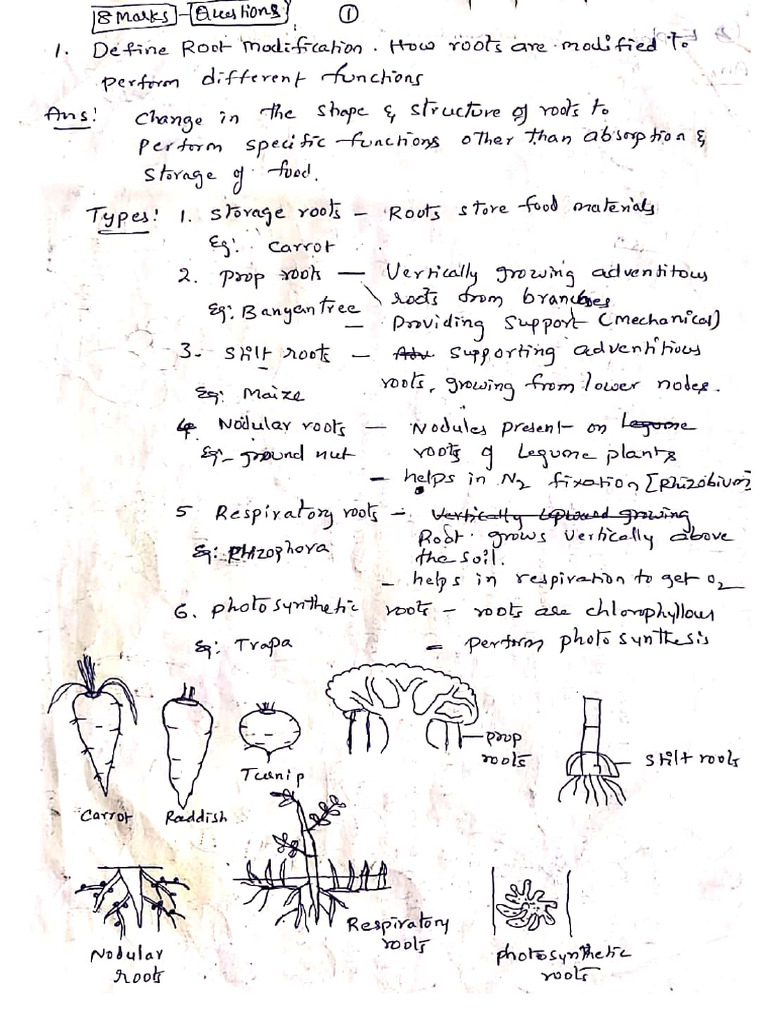 8 Marks - Questions ①
1. Define Root modification. How roots are modified to
perform different functions
Ans: Change in the shape & structure of roots to
perform specific functions other than absorption &
storage of food.
Types: 1. Storage roots - Roots store food materials
Eg: Carrot
2. prop roots - Vertically growing adventitous
roots from branches
Eg: Banyan tree
- Providing support (mechanical)
3. Stilt roots - Adv supporting adventitious
roots, growing from lower nodes.
Eg: Maize
4 Nodular roots - Nodules present on Legume
Eg:- ground nut roots of Legume plants
- helps in N2 fixation [Rhizobium]
5 Respiratory roots - Vertically growing
Root grows vertically above
Eg: Rhizophora the soil.
- helps in respiration to get O2
6. photosynthetic roots - roots are chlorophyllous
Eg: Trapa = perform photosynthesis
prop
roots
stilt roots
Turnip
Carrot Raddish
Respiratory
roots
Nodular
roots
photosynthetic
roots